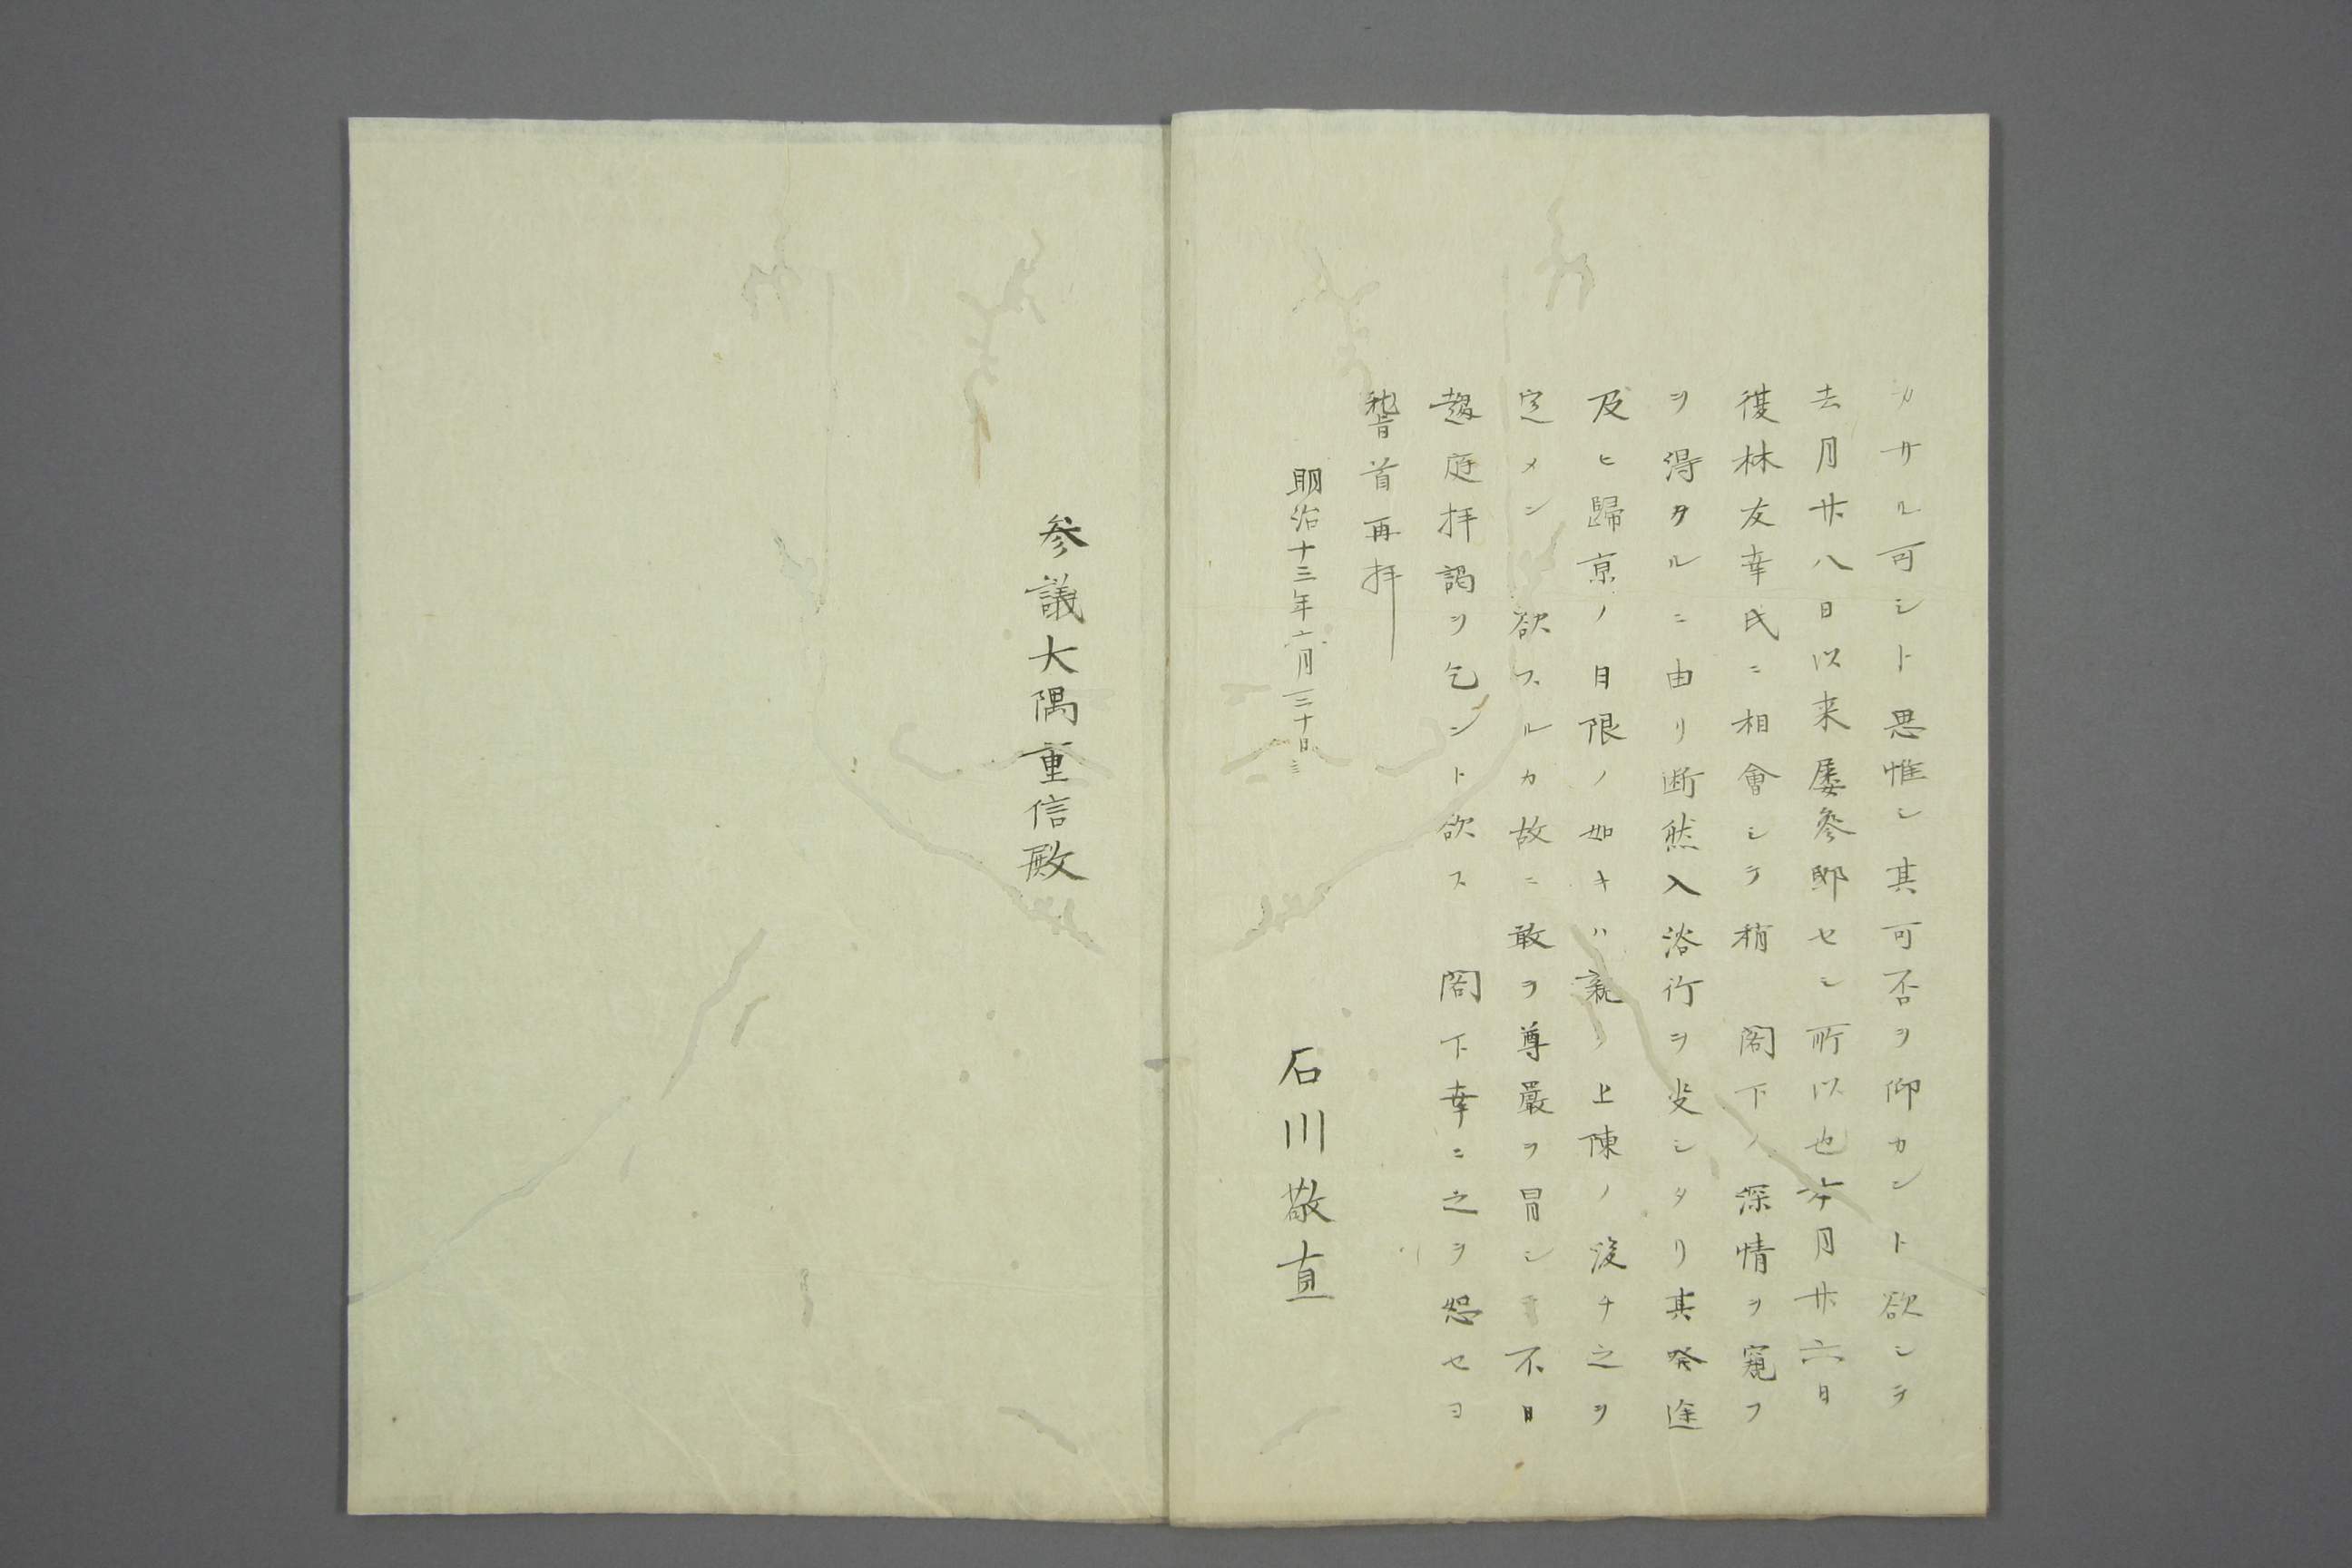 カサル可シト思惟シ其可否ヲ仰カント欲シテ
去月廿八日以来屡參邸セシ所以也本月廿六日
復林友幸氏ニ相會シテ稍 閣下ノ深情ヲ窺フ
ヲ得タルニ由リ断然入浴行ヲ決シタリ其発途
及ヒ歸京ノ日限ノ如キハ親ク上陳ノ後チ之ヲ
定メント欲スルカ故ニ敢テ尊嚴ヲ冒シテ不日
趨庭拝謁ヲ乞ント欲ス 閣下幸ニ之ヲ恕セヨ
稽首再拝
明治十三年六月三十日
石川敬直
参議大隅重信殿